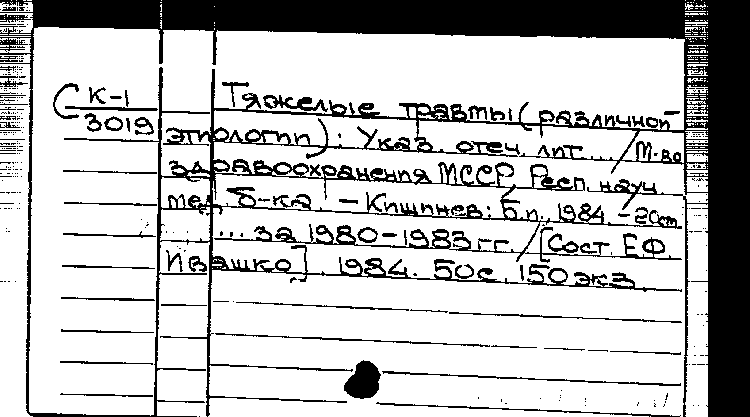 К-1
3019
Тяжелые травмы (различной
этиологии) : Указ. отеч. лит... / М-во
здравоохранения МССР, Респ. науч.
мед. б-ка - Кишинев: Б.и., 1984. - 20см
... за 1980-1983гг. / [Сост. Е.Ф.
Ивашко]. 1984. 50с. 150 экз.